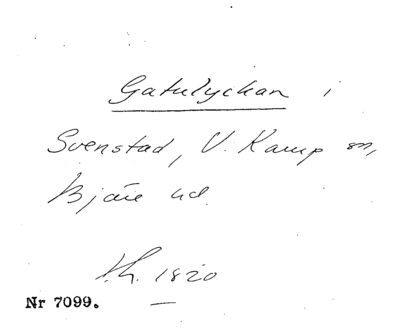 Gatulyckan i
Svenstad, V. Karup sn,
Bjäre hd.
l.h. 1820
Nr 7099.